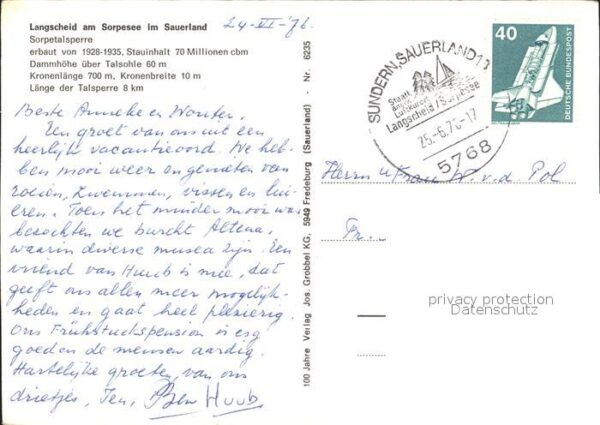 Langscheid am Sorpesee im Sauerland
Sorpetalsperre
erbaut von 1928-1935, Stauinhalt 70 Millionen cbm
Dammhöhe über Talsohle 60 m
Kronenlänge 700 m, Kronenbreite 10 m
Länge der Talsperre 8 km
24-VI-'76
Beste Anneke en Wouter,
Een groet van ons uit een
heerlijk vacantieoord. We heb-
ben mooi weer en genieten van
roeien, zwemmen, vissen en lui-
eren. Toen het minder mooi was
bezochten we burcht Altena,
waarin diverse musea zijn. Een
vriend van Huub is mee, dat
geeft ons allen meer mogelijk-
heden en gaat heel plezierig.
Ons Frühstückspension is erg
goed en de mensen aardig.
Hartelijke groeten, van ons
drietjes, Ien, Ben Huub
100 Jahre Verlag Jos. Grobbel KG, 5949 Fredeburg (Sauerland) - Nr. 6235
SUNDERN, SAUERLAND 1
Staatl.
anerk.
Luftkurort
Langscheid/Sorpesee
25.-6.76-17
5768
40
DEUTSCHE BUNDESPOST
Herrn u Frau W. v.d. Pol
Fr.
privacy protection
Datenschutz